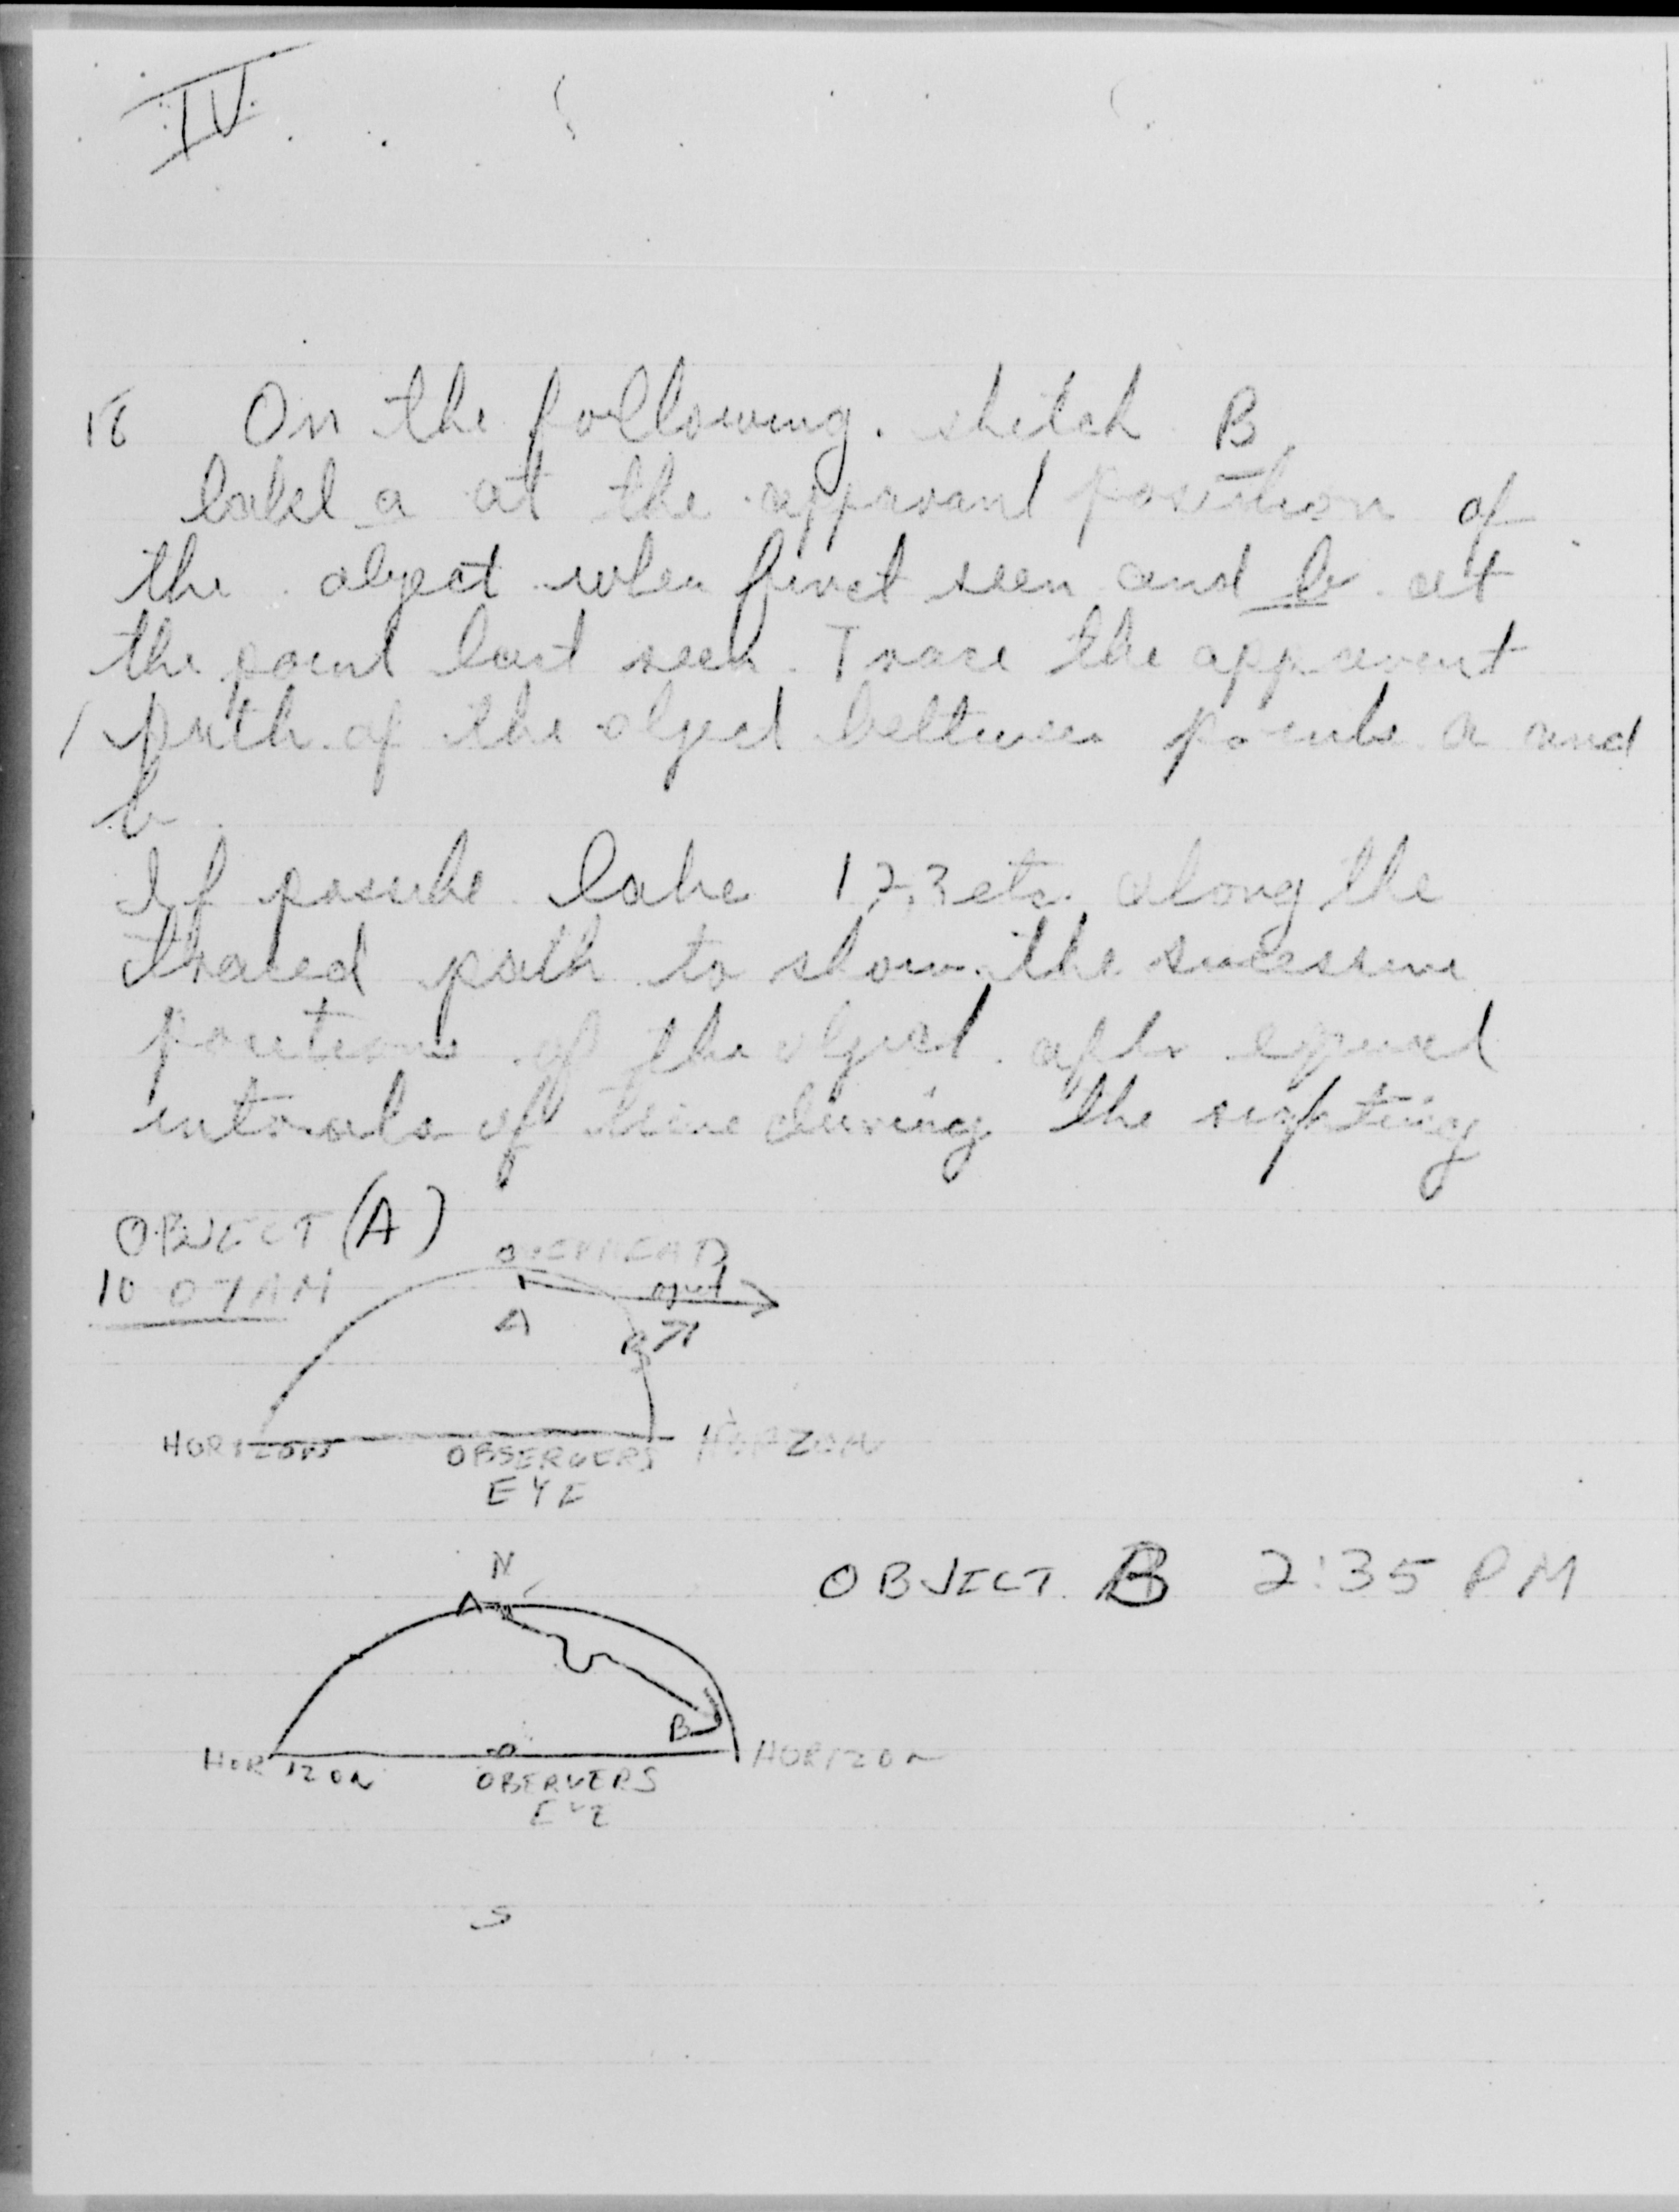 IV
On the following sketch B
label a at the apparant position of
the object when first seen and b at
the point last seen. Trace the apparent
path of the object between points a and
b
If possibe labe 1 2, 3 etc. along the
traced path to show the sucessive
positions of the object after equal
intervals of time during the sighting
OBJECT (A)
OVERHEAD
10 07 AM
A
B
HORIZON OBSERVERS HORZON
EYE
N
OBJECT B 2:35 PM
A
B
HORIZON HORIZON
OBERVERS
EYE
S